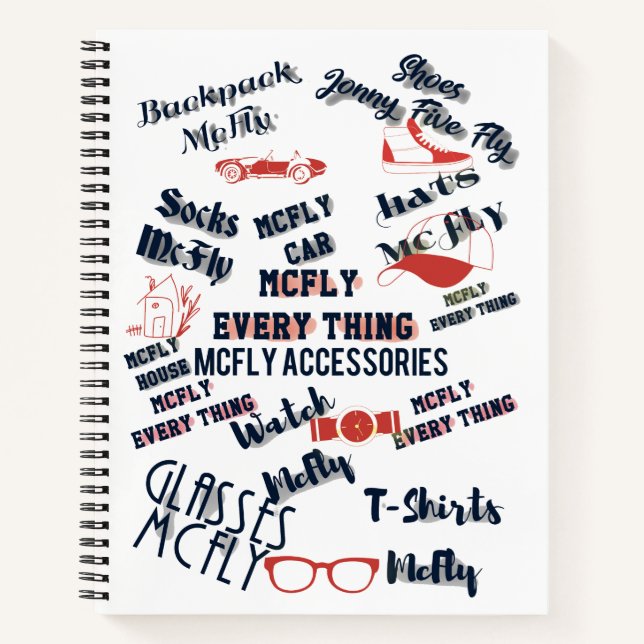 Backpack
McFly
Shoes
Jonny Five Fly
Socks
McFly
MCFLY
CAR
hats
McFly
MCFLY
EVERY THING
MCFLY
EVERY THING
MCFLY ACCESSORIES
MCFLY
HOUSE
MCFLY
EVERY THING
Watch
McFly
MCFLY
EVERY THING
GLASSES
MCFLY
T-Shirts
McFly